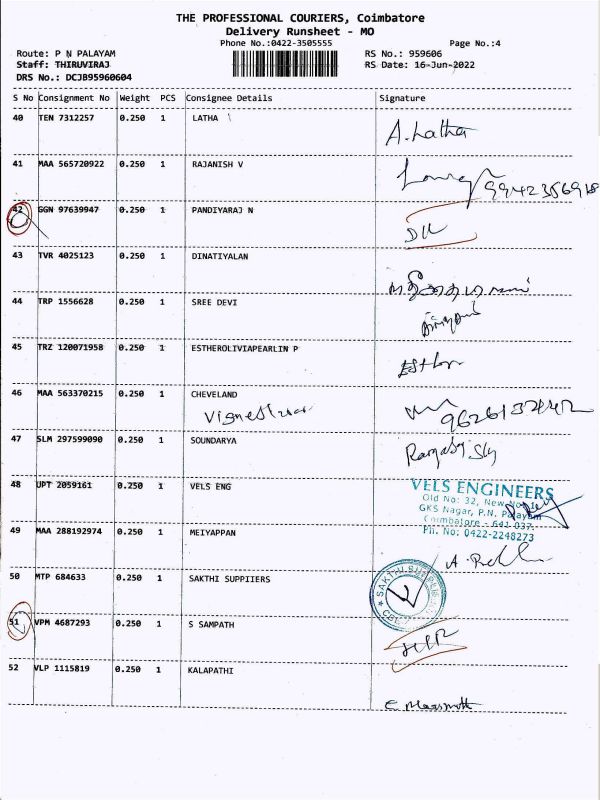 THE PROFESSIONAL COURIERS, Coimbatore
Delivery Runsheet - MO
Phone No.:0422-3505555
Page No.:4
Route: P N PALAYAM
RS No.: 959606
Staff: THIRUVIRAJ
RS Date: 16-Jun-2022
DRS No.: DCJB95960604
S No Consignment No Weight PCS Consignee Details Signature
40 TEN 7312257 0.250 1 LATHA
A. Latha
41 MAA 565720922 0.250 1 RAJANISH V
9942356918
42 GGN 97639947 0.250 1 PANDIYARAJ N
43 TVR 4025123 0.250 1 DINATIYALAN
44 TRP 1556628 0.250 1 SREE DEVI
45 TRZ 120071958 0.250 1 ESTHEROLIVIAPEARLIN P
46 MAA 563370215 0.250 1 CHEVELAND
47 SLM 297599090 0.250 1 SOUNDARYA
48 UPT 2059161 0.250 1 VELS ENG
VELS ENGINEERS
Old No: 32, New
GKS Nagar, P.N. Palayam
Coimbatore - 641 037.
Ph. No: 0422-2248273
49 MAA 288192974 0.250 1 MEIYAPPAN
50 MTP 684633 0.250 1 SAKTHI SUPPIIERS
51 VPM 4687293 0.250 1 S SAMPATH
52 VLP 1115819 0.250 1 KALAPATHI